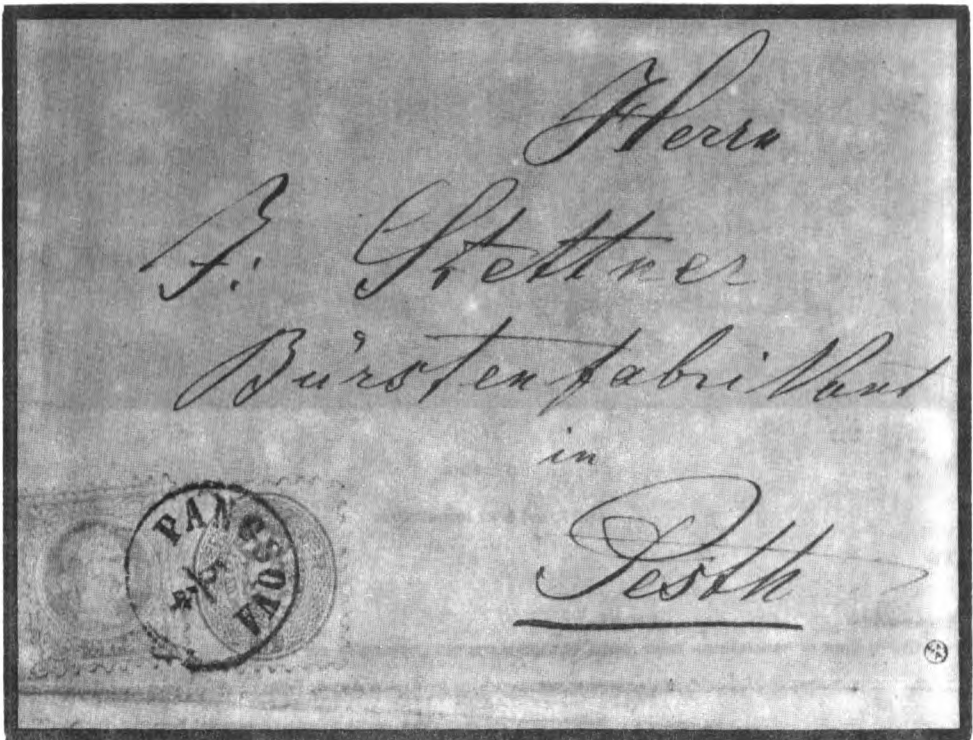 Herrn
F. Stettner
Bürstenfabrikant
in
Pesth
PANCSOVA